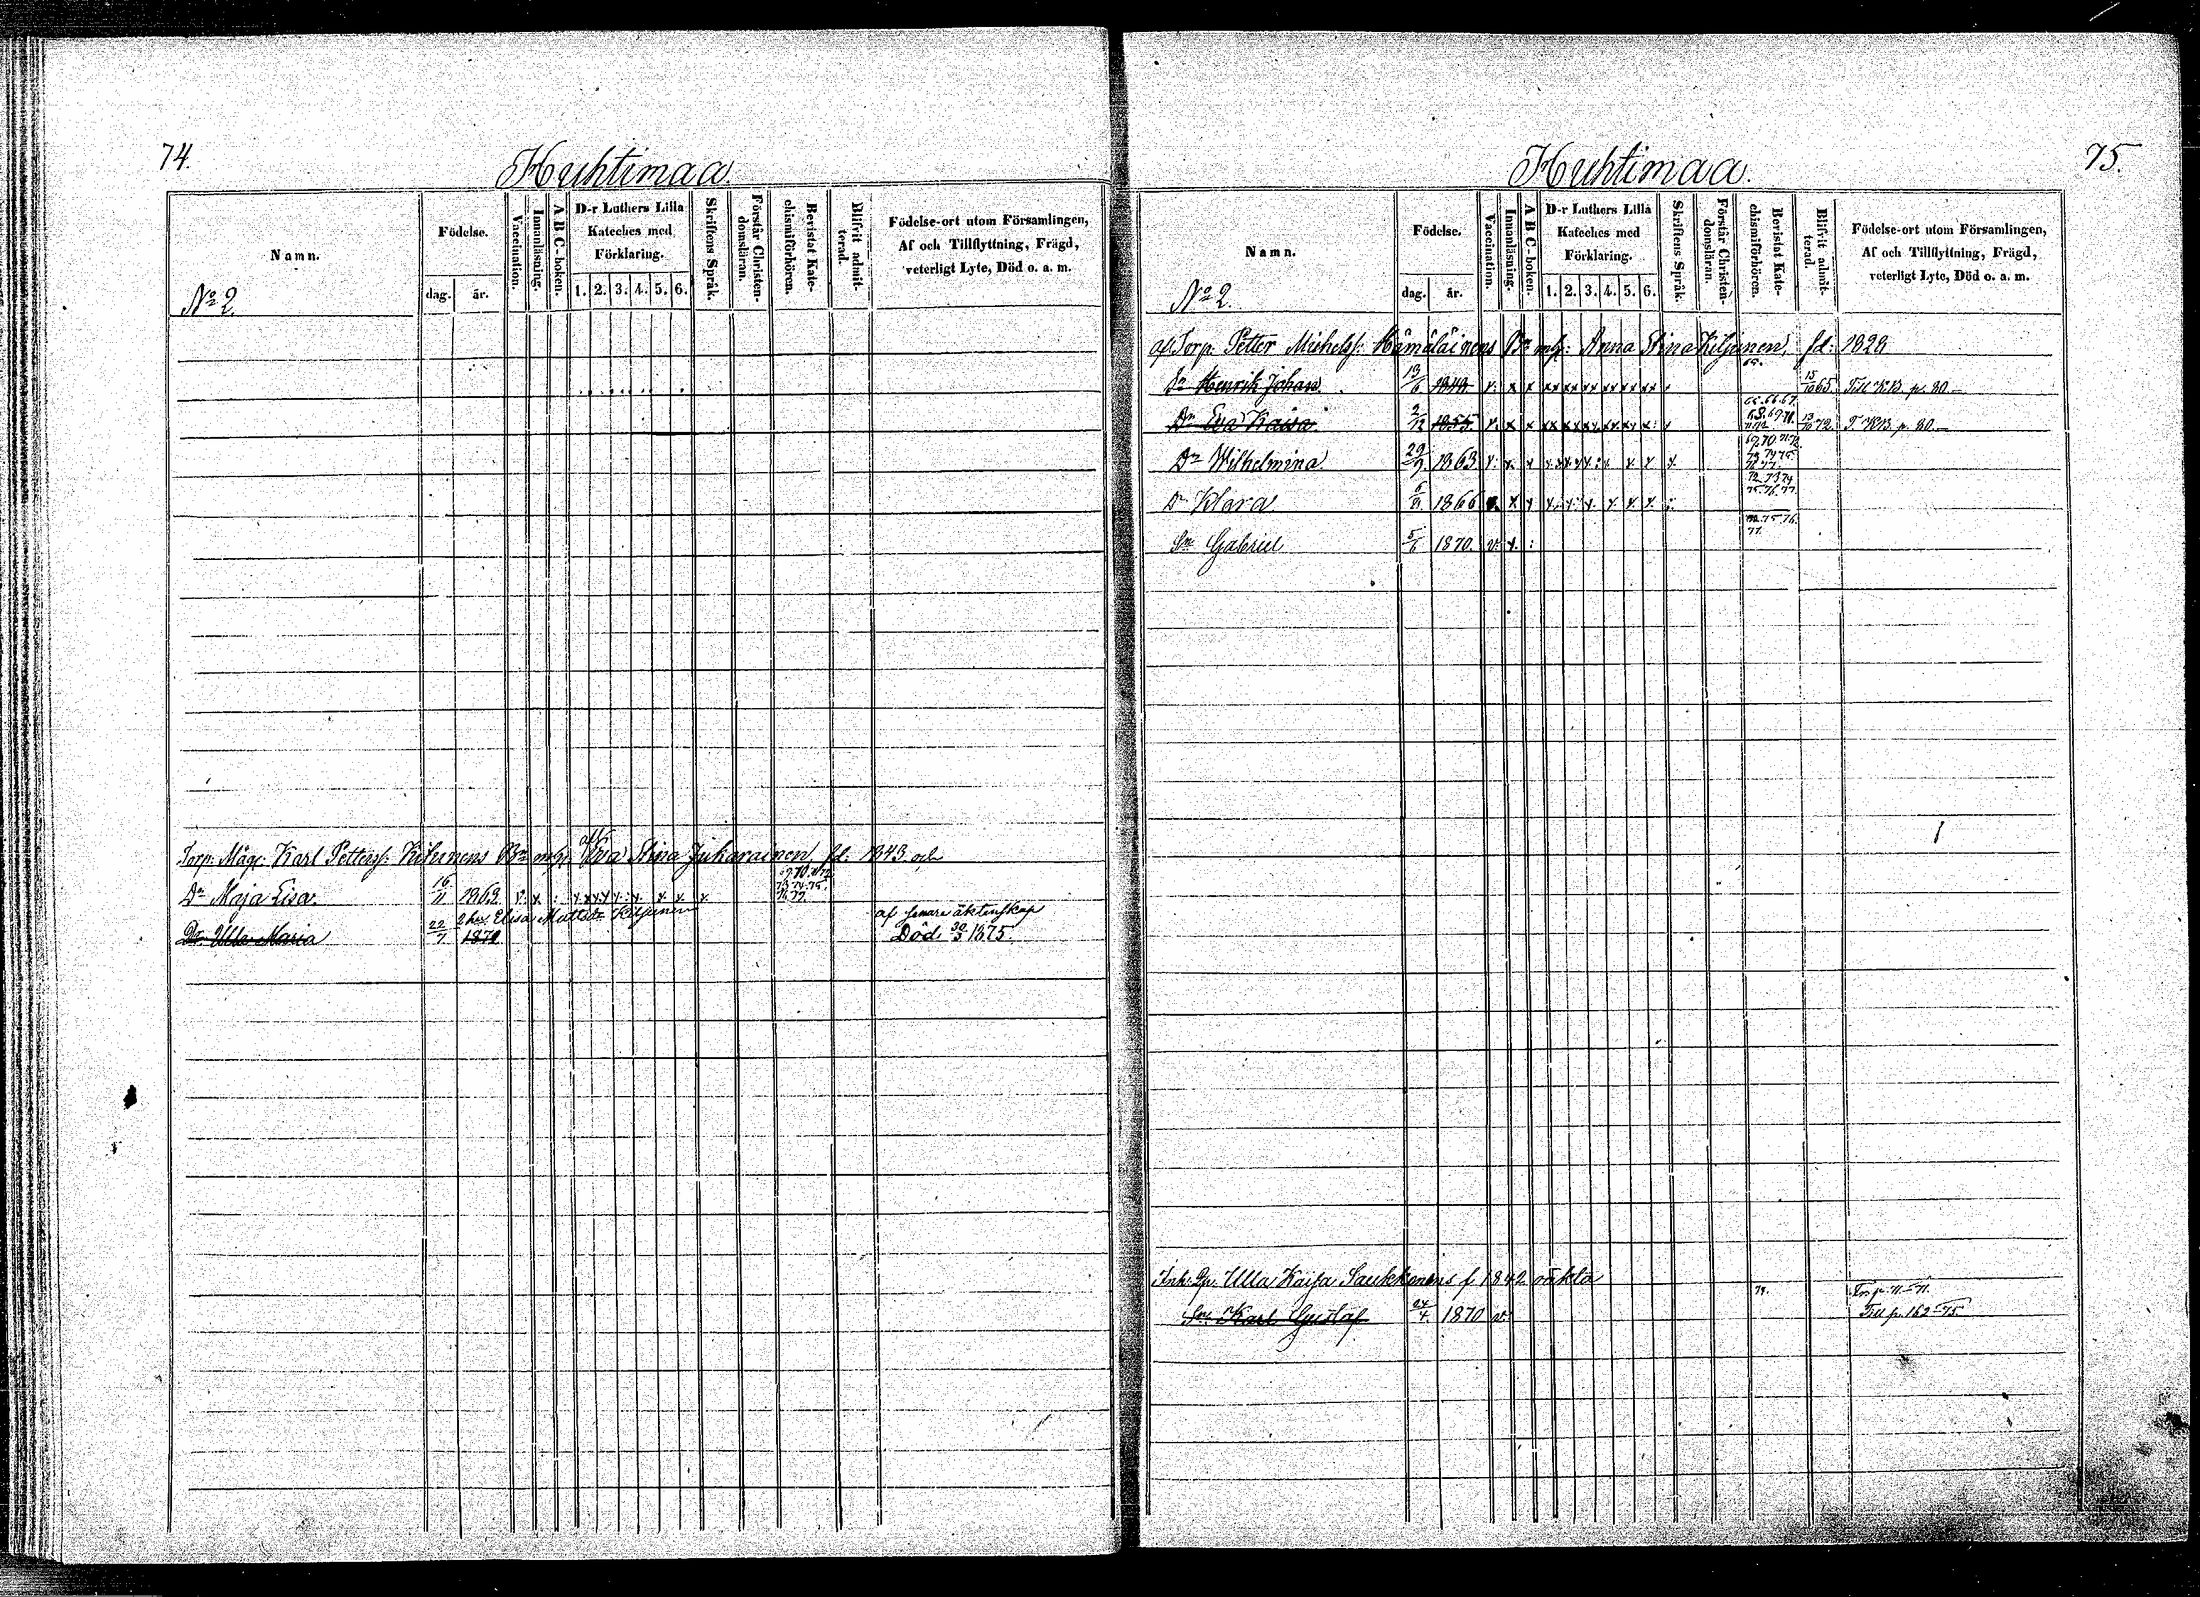 74.
Huhtimaa
Namn.
Födelse.
dag. år.
Vaccination.
Innanläsning.
A B C-boken.
D-r Luthers Lilla Kateches med Förklaring.
1. 2. 3. 4. 5. 6.
Skriftens Språk.
Förstår Christendomsläran.
Bevistat Katechismiförhören.
Blifvit admitterad.
Födelse-ort utom Församlingen, Af och Tillflyttning, Frägd, veterligt Lyte, Död o. a. m.
No 2.
Torp: Måg: Karl Petterss: Kilunens Bn mh: Eva Stina Jukarainen, fd: 1843 och
Dr Maja Lisa. 16/11 1863 v. x.
2 hu Elisa Mattsdr Kiljunen af senare äktenskap
Dr. Ulla Maria 22/7 1871 Död 30/3 1875.
75.
Huhtimaa.
Namn.
Födelse.
dag. år.
Vaccination.
Innanläsning.
A B C-boken.
D-r Luthers Lilla Kateches med Förklaring.
1. 2. 3. 4. 5. 6.
Skriftens Språk.
Förstår Christendomsläran.
Bevistat Katechismiförhören.
Blifvit admitterad.
Födelse-ort utom Församlingen, Af och Tillflyttning, Frägd, veterligt Lyte, Död o. a. m.
No 2.
af Torp: Petter Michelss: Hämäläinens Bn mh: Anna Stina Kiljunen, fd: 1828
Sn Henrik Johan 13/6 1848 v. x x xx xx xx xx xx xx 65. 15/10 65. Till KB p. 80.
Dr Eva Kaisa 2/12 1855 v. x x 65. 66. 67. 68. 69. 70. 71. 72 13/10 72. T KB p. 80.
Dr Wilhelmina 29/7 1863 v. x. x 69. 70. 71. 72. 73. 74. 75. 76. 77.
Dr Klara 6/9 1866 v. x x 72. 73. 74. 75. 76. 77.
Sn Gabriel 5/6 1870. v. x. 75. 76. 77.
Inh: Pp. Ulla Kaisa Saukkonens f. 1842 oäkta 74. Frp. 71 -71.
Sn. Karl Gustaf 24/4 1870 v. Till p. 162 -75.